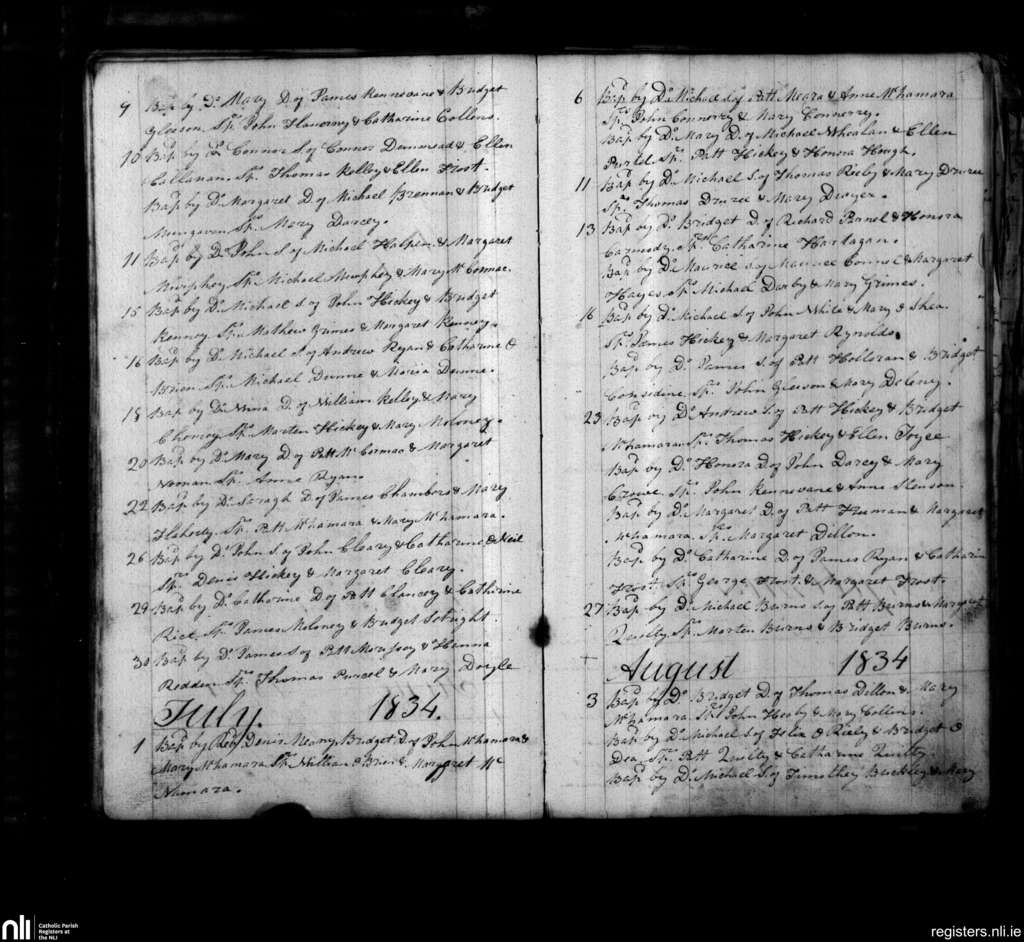 9 Bap by Do Mary D. of James Kennevane & Bridget
Gleeson Sps John Flanerny & Catharine Collens.
10 Bap by Do Connor S. of Connor Dunmead & Ellen
Callanan. Sps Thomas Kelley & Ellen Frost.
Bap by Do Margaret D. of Michael Brennan & Bridget
Mungaven Sps Mary Darcey.
11 Bap by Do John S. of Michael Halpen & Margaret
Murphey Sps Michael Murphey & Mary Mc Cormac.
15 Bap by Do Michael S. of John Hickey & Bridget
Kenney Sps Mathew Grimes & Margaret Kenney.
16 Bap by Do Michael S. of Andrew Ryan & Catharine O
Brien Sps Michael Dunne & Maria Dunne.
18 Bap by Do Anna D. of William Kelley & Mary
Sps Marten Hickey & Mary Moloney.
20 Bap by Do Mary D. of Patt Mc Cormac & Margaret
Noonan Sps Anne Ryan.
22 Bap by Do Saragh D. of James Chambers & Mary
Flaherty Sps Patt Mcnamara & Mary Mcnamara.
26 Bap by Do John S. of John Cleary & Catharine O Neil
Sps Denis Hickey & Margaret Cleary.
29 Bap by Do Catharine D. of Patt Clancey & Catharine
Rice Sps James Moloney & Bridget
30 Bap by Do James S. of Patt & Hanna
Redden Sps Thomas Purcel & Mary Doyle
July. 1834.
1 Bap by Revd Denis Meany Bridget D. of John Mcnamara &
Mary Mcnamara Sps William O Brien & Margret Mc
Namara.
6 Bap by Do Michael S. of Patt Meara & Anne Mcnamara
Sps John Connerry & Mary Connerry.
Bap by Do Mary D. of Michael Whealan & Ellen
Purtel Sps Patt Hickey & Honora Hough.
11 Bap by Do Michael S. of Thomas Rieley & Mary Druree
Sps Thomas Druree & Mary Dwyer.
13 Bap by Do Bridget D. of Richard Parnel & Honora
Carmody. Sps Catharine Hartagan.
Bap by Do Maurice S. of Maurice Connel & Margret
Hayes Sps Michael Darby & Mary Grimes.
16 Bap by Do Michael S. of John White & Mary O Shea.
Sps James Hickey & Margaret Rynolds
Bap by Do James S. of Patt Holloran & Bridget
Considine Sps John Gleeson & Mary Deleney.
23 Bap by Do Andrew S. of Patt Hickey & Bridget
Mcnamara Sps Thomas Hickey & Ellen Joyce
Bap by Do Honora D. of John Darcey & Mary
Crowe Sps John Kennevane & Anne
Bap by Do Margaret D. of Patt Freeman & Margaret
Mcnamara. Sps Margaret Dillon.
Bap by Do Catharine D. of James Ryan & Catharin
Frost. Sps George Frost. & Margaret Frost.
27 Bap by Do Michael Burns S. of Patt Burns & Margaret
Quilty Sps Marten Burns & Bridget Burns.
August 1834
3 Bap by Do Bridget D. of Thomas Dillon & Mary
Mcnamara. Sps John & Mary Collens.
Bap by Do Michael S. of Felix O Riely & Bridget O
Dea Sps Patt Quilty & Catharine Quilty
Bap by Do Michael S. of Timothey Buckley & Mary
nli
Catholic Parish
Registers at
the NLI
registers.nli.ie